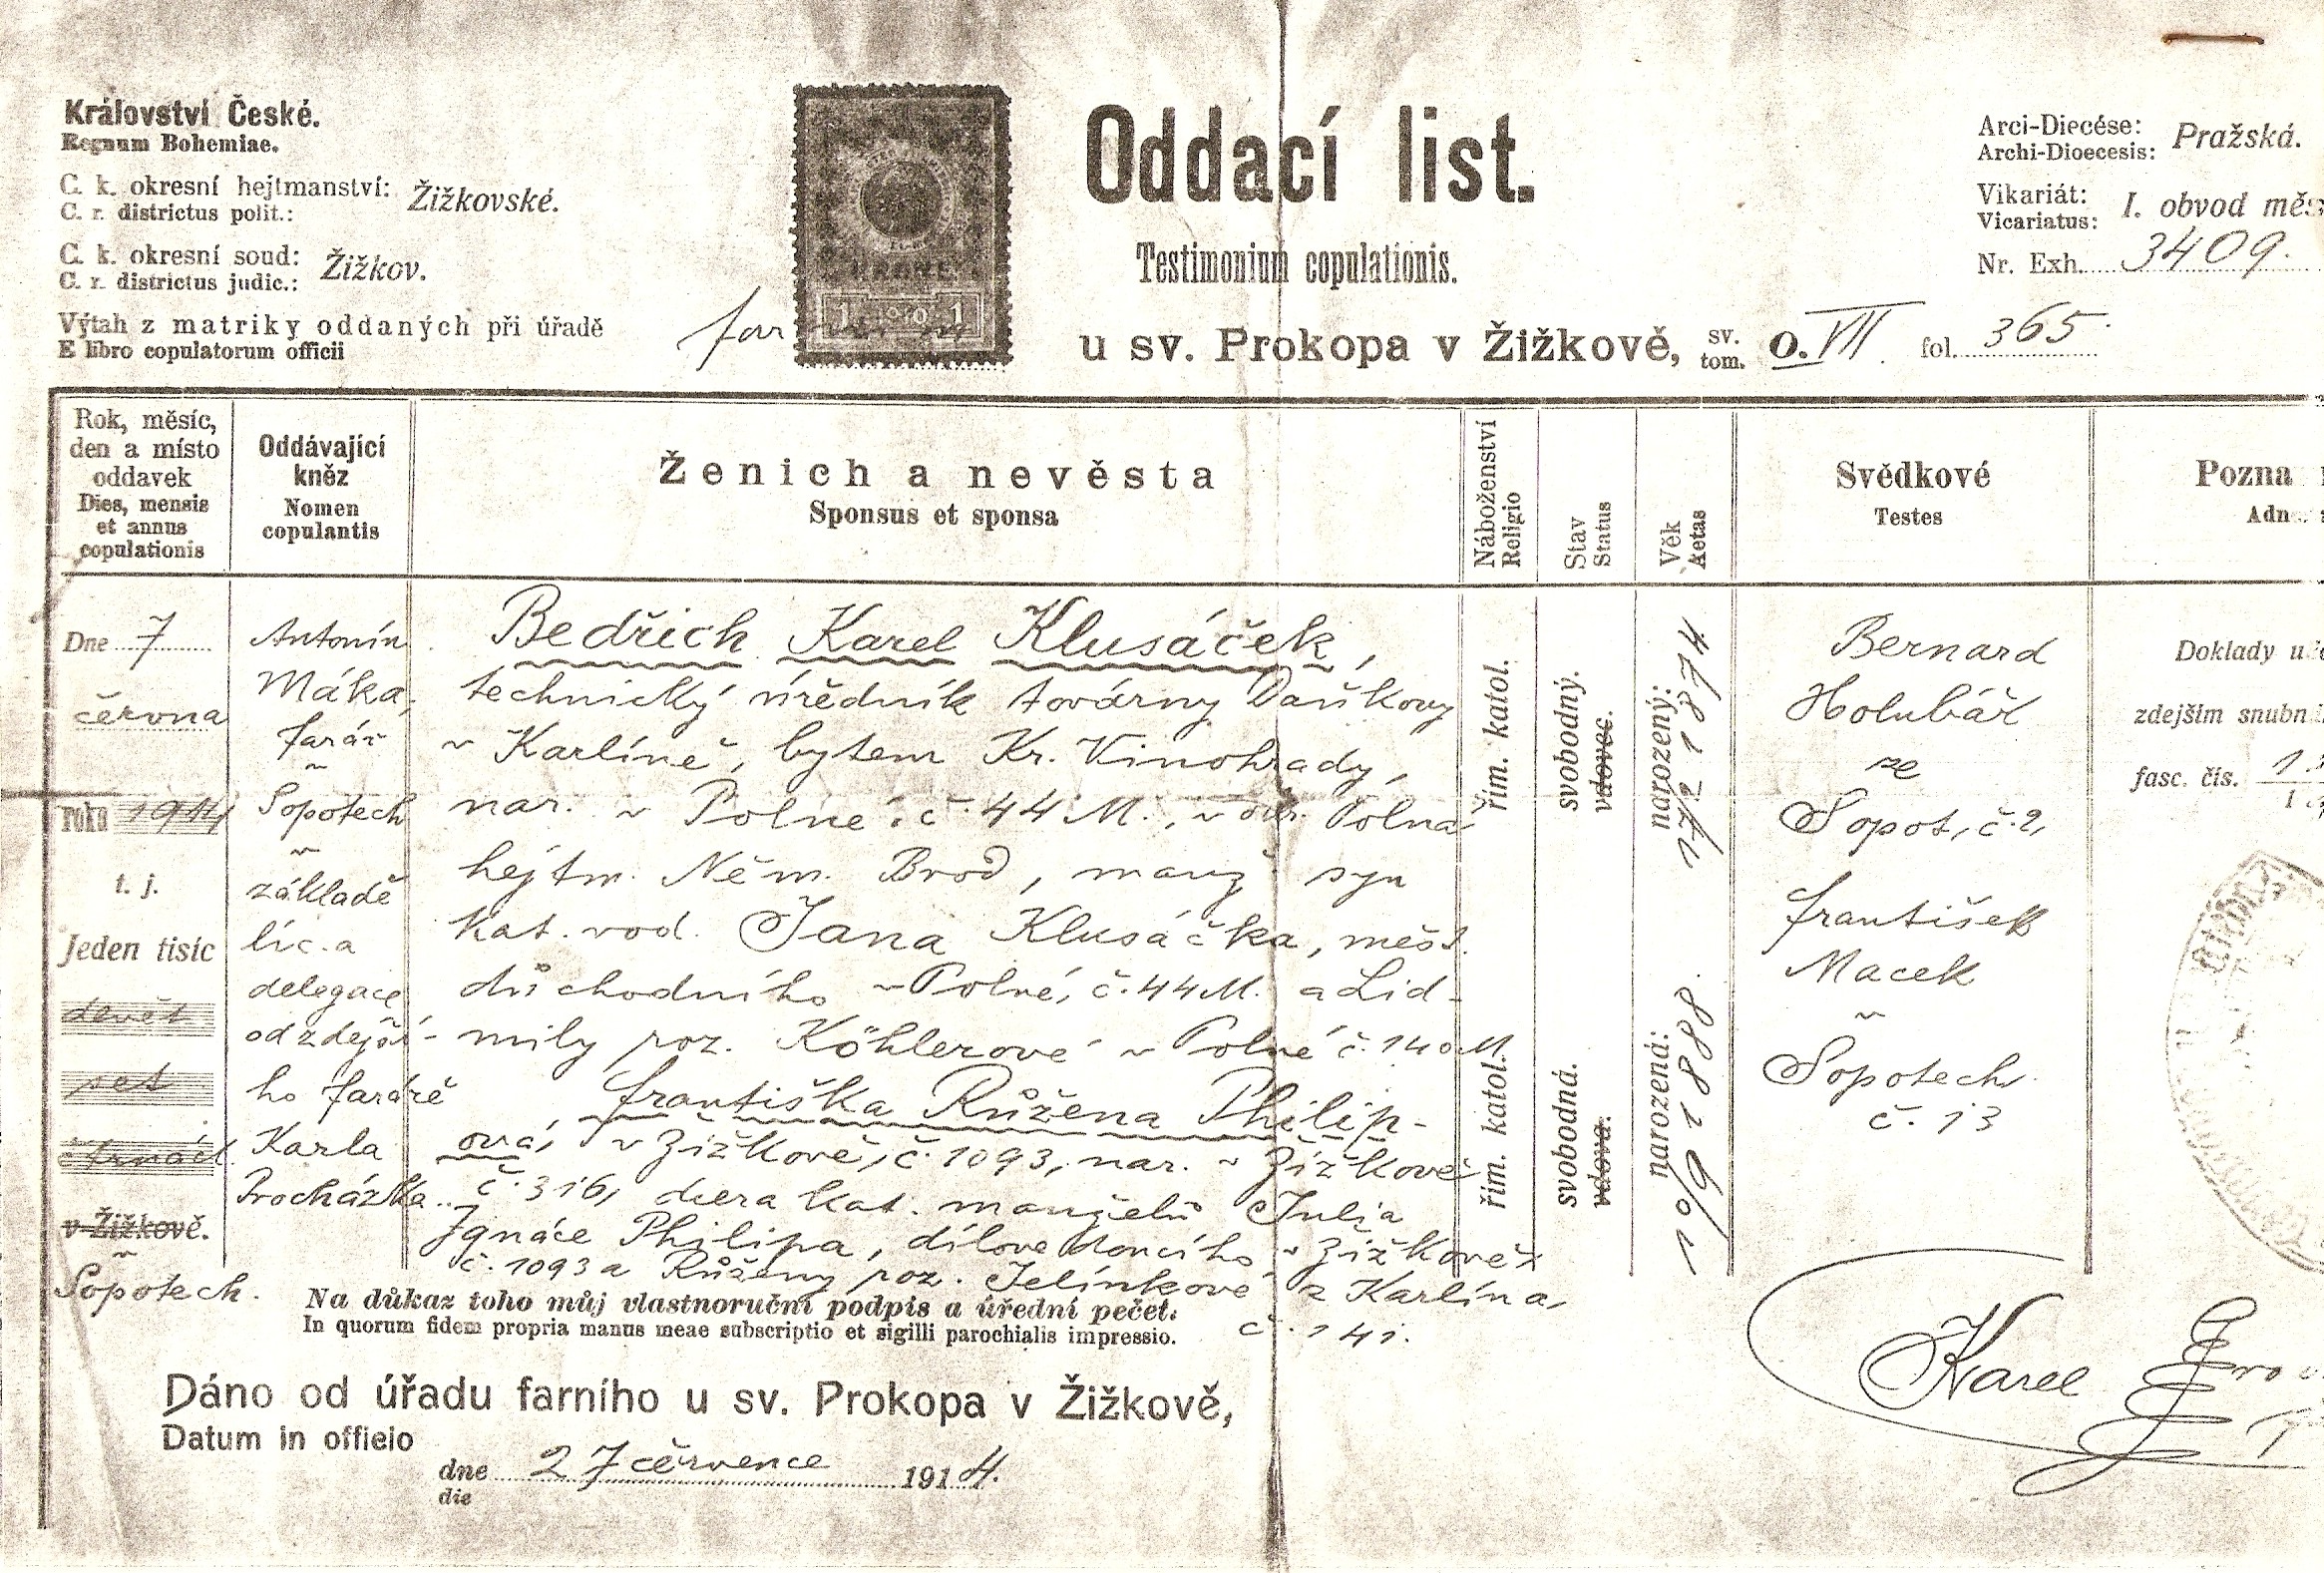 Království České.
Regnum Bohemiae.
C. k. okresní hejtmanství: Žižkovské.
C. r. districtus polit.:
C. k. okresní soud: Žižkov.
C. r. districtus judic.:
Výtah z matriky oddaných při úřadě far
E libro copulatorum officii
1 1
Oddací list.
Testimonium copulationis.
u sv. Prokopa v Žižkově, sv. tom. O. VII fol. 365.
Arci-Diecése: Pražská.
Archi-Dioecesis:
Vikariát: I. obvod měs
Vicariatus:
Nr. Exh. 3409.
Rok, měsíc,
den a místo
oddavek
Dies, mensis
et annus
copulationis
Oddávající
kněz
Nomen
copulantis
Ženich a nevěsta
Sponsus et sponsa
Náboženství
Religio
Stav
Status
Věk
Aetas
Svědkové
Testes
Pozna
Adn
Dne 7
června
roku 1914
t. j.
Jeden tisíc
devět
set
čtrnáct
v Žižkově.
v
Sopotech.
Antonín
Máka,
farář
v
Sopotech
v
základě
lic. a
delegace
od zdejší-
ho faráře
Karla
Procházka
Bedřich Karel Klusáček,
technický úředník továrny Daňkovy
v Karlíně, bytem Kr. Vinohrady,
nar. v Polné č. 44 M., v okr. Polná
hejtm. Něm. Brod, manž. syn
kat. rod. Jana Klusáčka, měst.
důchodního v Polné, č. 44 M. a Lid-
mily roz. Köhlerové v Polné č. 140 M.
Františka Růžena Philip-
ová, v Žižkově, č. 1093, nar. v Žižkově
č. 316, dcera kat. manželů Julia
Ignáce Philipa, dílovedoucího v Žižkově
č. 1093 a Růženy roz. Jelínkové z Karlína,
č. 141.
řím. katol.
řím. katol.
svobodný.
vdovec.
svobodná.
vdova.
narozený:
17/2 1874
narozená:
10/9 1888.
Bernard
Holubář
ze
Sopot, č. 2,
František
Macek
v
Sopotech
č. 13
Doklady u
zdejším snubn
fasc. čís. 1
Na důkaz toho můj vlastnoruční podpis a úřední pečeť:
In quorum fidem propria manus meae subscriptio et sigilli parochialis impressio.
Dáno od úřadu farního u sv. Prokopa v Žižkově,
Datum in officio
dne 27 července 1914.
die
Karel